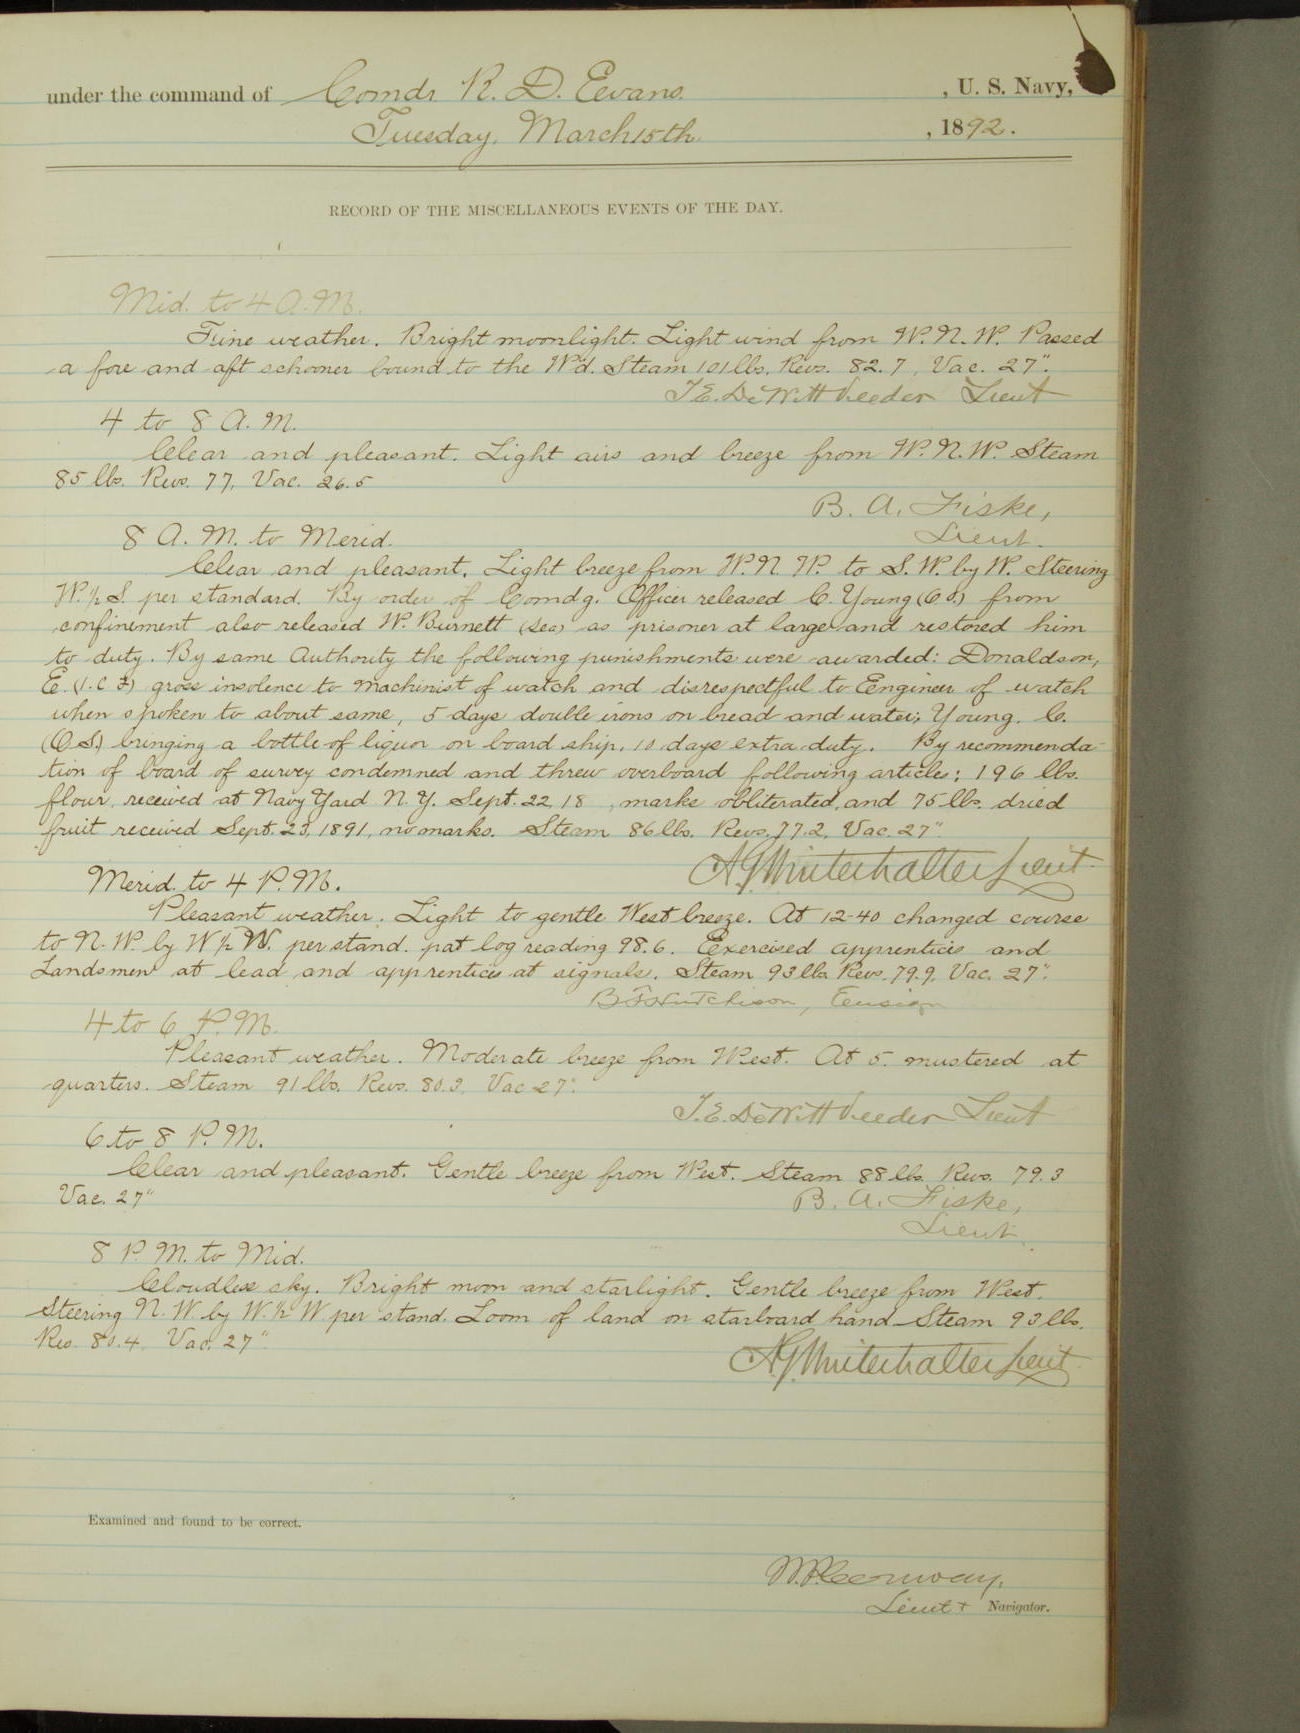 under the command of Comdr R. D. Evans. , U. S. Navy,
Tuesday, March 15th , 1892.
RECORD OF THE MISCELLANEOUS EVENTS OF THE DAY.
Mid. to 4 A.M.
Fine weather. Bright moonlight. Light wind from W.N.W. Passed
a fore and aft schooner bound to the W'd. Steam 101 lbs, Revs. 82.7, Vac. 27".
T.E. DeWitt Veeder Lieut
4 to 8 A.M.
Clear and pleasant. Light airs and breeze from W.N.W. Steam
85 lbs. Revs. 77, Vac. 26.5
B. A. Fiske,
Lieut.
8 A.M. to Merid.
Clear and pleasant. Light breeze from W.N.W. to S.W. by W. Steering
W. ½ S. per standard. By order of Comdg. Officer released C. Young (O.S.) from
confinement also released W. Burnett (Sea) as prisoner at large and restored him
to duty. By same Authority the following punishments were awarded: Donaldson,
E. (1.C.F.) gross insolence to Machinist of watch and disrespectful to Engineer of watch
when spoken to about same, 5 days double irons on bread and water; Young, C.
(O.S.) bringing a bottle of liquor on board ship, 10 days extra duty. By recommenda-
tion of board of survey condemned and threw overboard following articles: 196 lbs.
flour, received at Navy Yard N.Y. Sept. 22, 18 , marks obliterated, and 75 lbs. dried
fruit received Sept. 23, 1891, no marks. Steam 86 lbs. Revs. 77.2, Vac. 27".
A.G. Winterhalter Lieut.
Merid. to 4 P.M.
Pleasant weather. Light to gentle West breeze. At 12-40 changed course
to N.W. by W ½ W. per stand. pat log reading 98.6. Exercised apprentices and
Landsmen at lead and apprentices at signals. Steam 93 lbs Revs. 79.9, Vac. 27".
B F Hutchison, Ensign
4 to 6 P.M.
Pleasant weather. Moderate breeze from West. At 5. mustered at
quarters. Steam 91 lbs. Revs. 80.3, Vac 27".
T.E. DeWitt Veeder Lieut
6 to 8 P.M.
Clear and pleasant. Gentle breeze from West. Steam 88 lbs. Revs. 79.3
Vac. 27"
B. A. Fiske,
Lieut.
8 P.M. to Mid.
Cloudless sky. Bright moon and starlight. Gentle breeze from West.
Steering N.W by W. ½ W. per stand. Loom of land on starboard hand Steam 93 lbs.
Rev. 80.4. Vac. 27".
A.G. Winterhalter Lieut.
Examined and found to be correct.
Conway,
Lieut & Navigator.